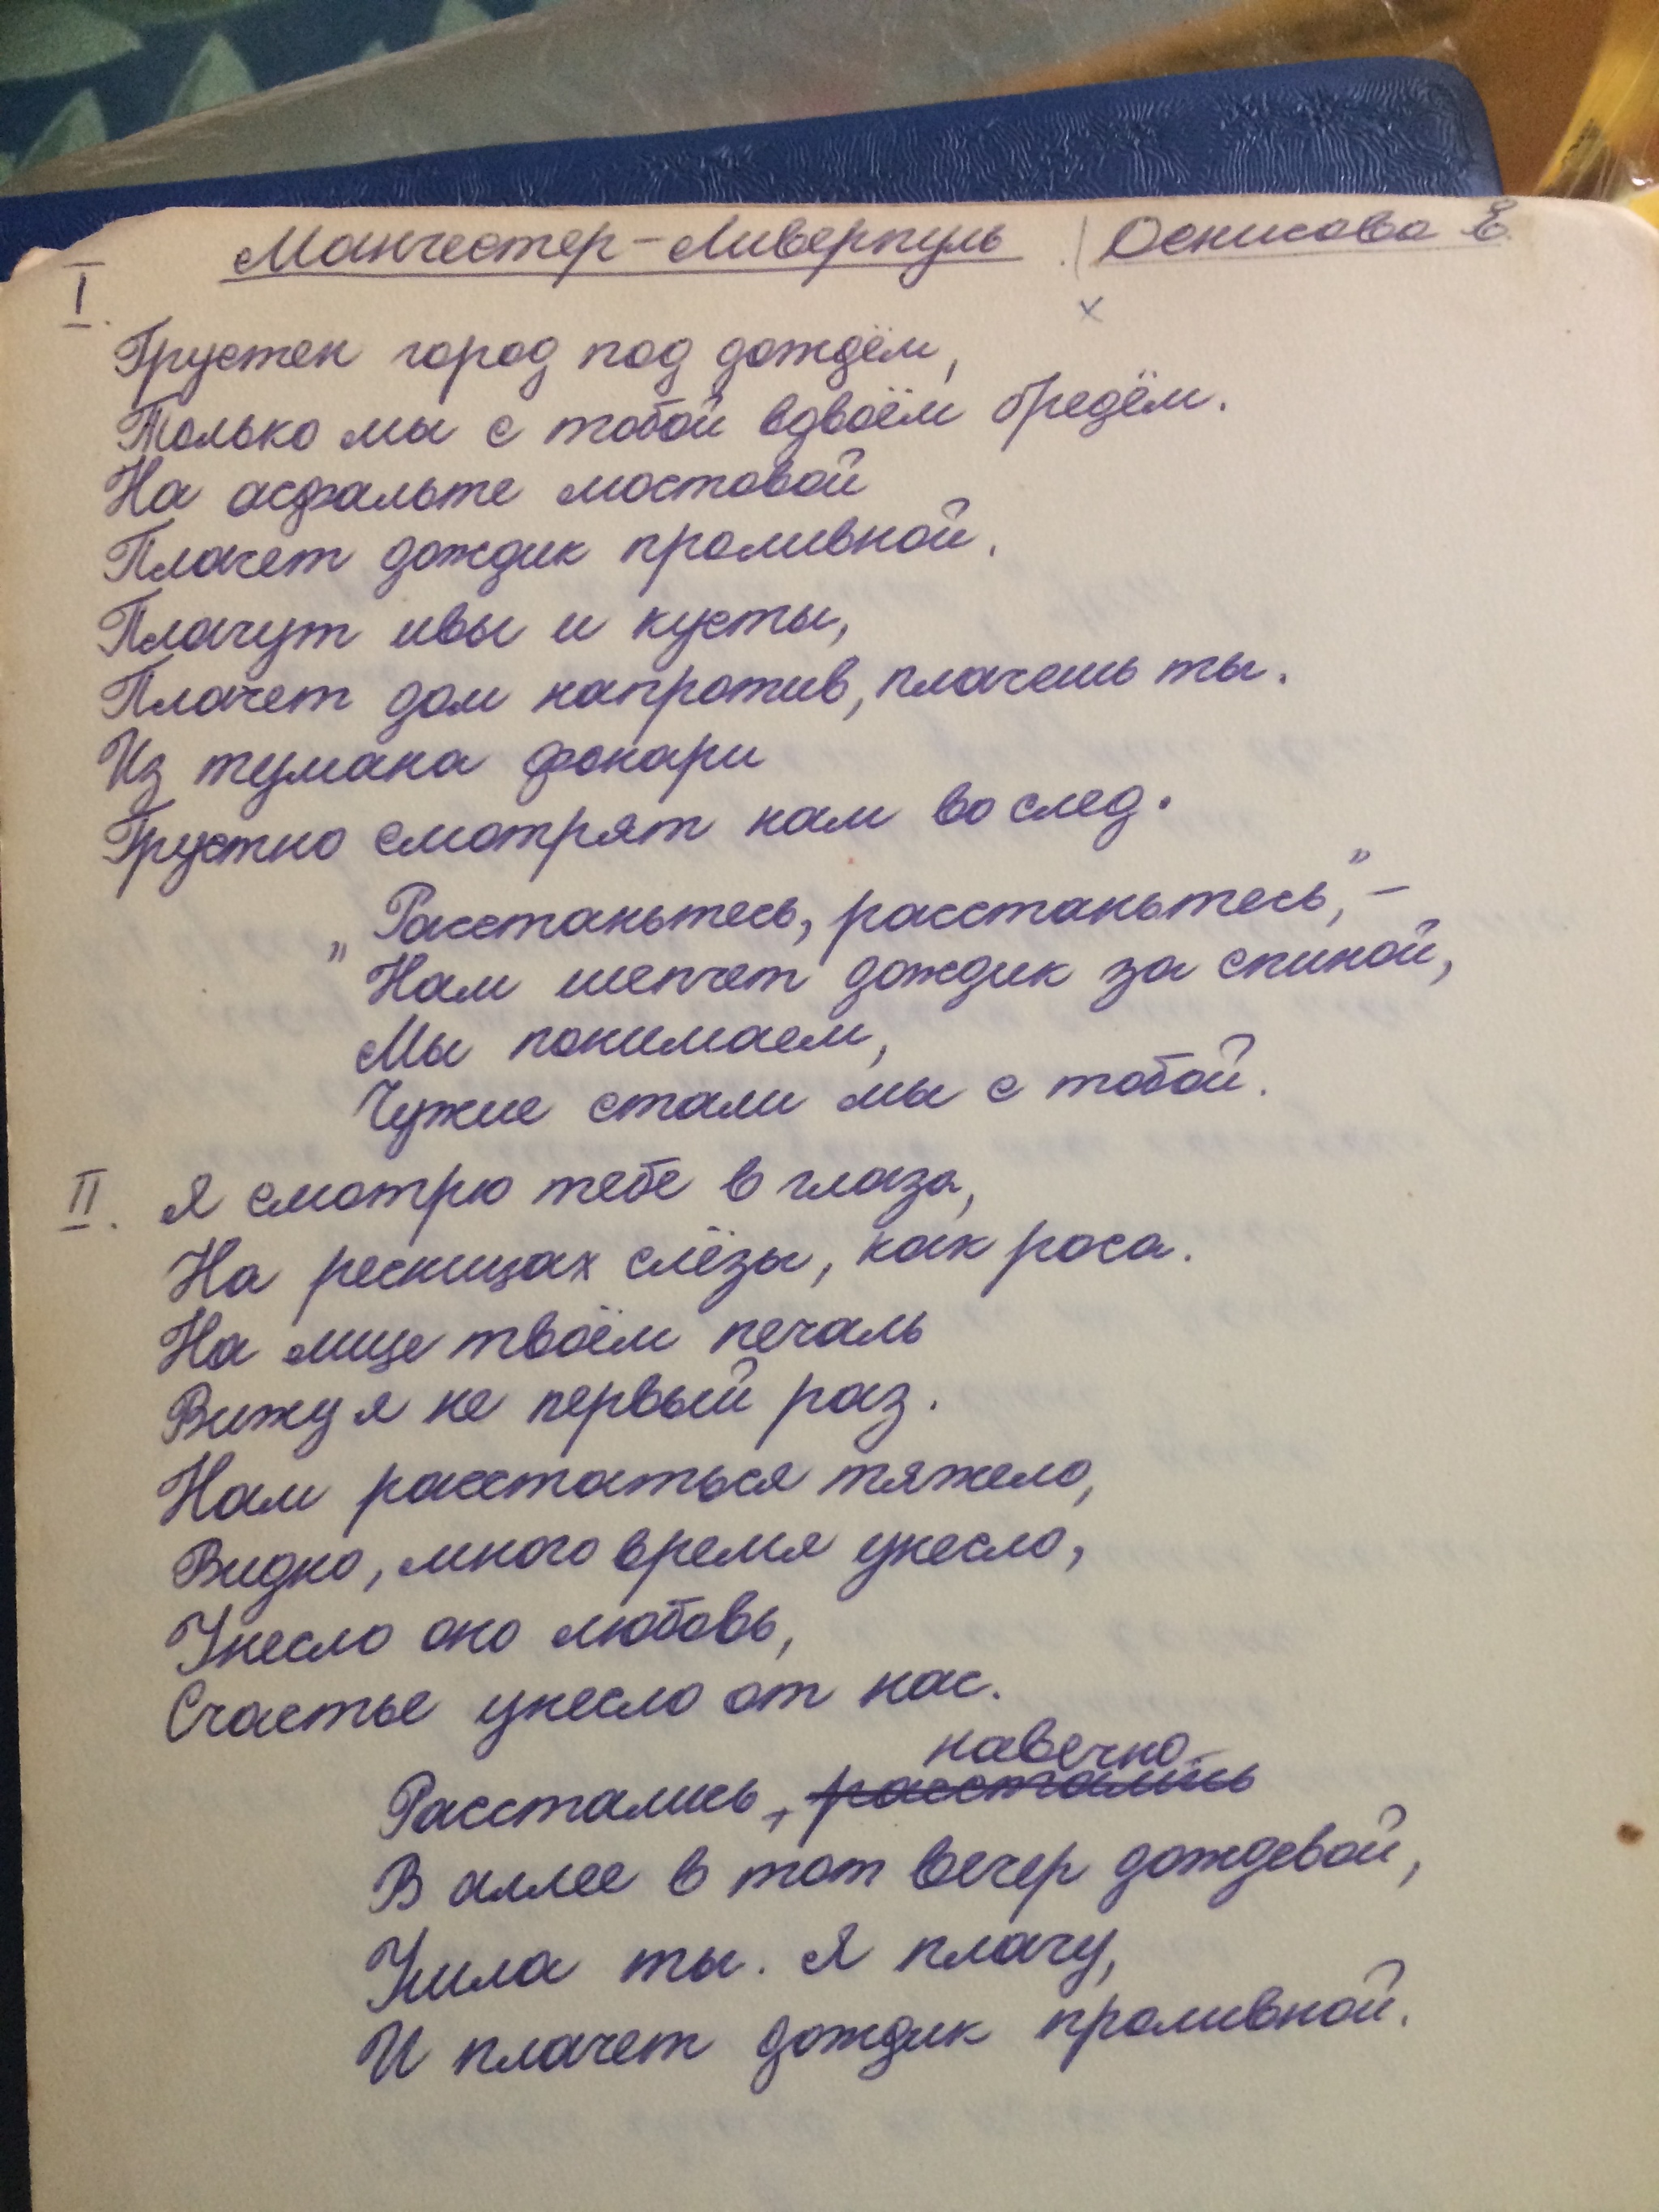 Манчестер-Ливерпуль | Оснисова Е.
I.
Грустен город под дождём,
Только мы с тобой вдвоём бредём.
На асфальте мостовой
Плачет дождик проливной.
Плачут ивы и кусты,
Плачет дом напротив, плачешь ты.
Из тумана фонари
Грустно смотрят нам во след.
„Расстаньтесь, расстаньтесь," –
Нам шепчет дождик за спиной,
Мы понимаем,
Чужие стали мы с тобой.
II. Я смотрю тебе в глаза,
На ресницах слёзы, как роса.
На лице твоём печаль
Вижу я не первый раз.
Нам расстаться тяжело,
Видно, много время унесло,
Унесло оно любовь,
Счастье унесло от нас.
навечно
Расстались, расстались
В аллее в тот вечер дождевой,
Ушла ты. Я плачу,
И плачет дождик проливной.